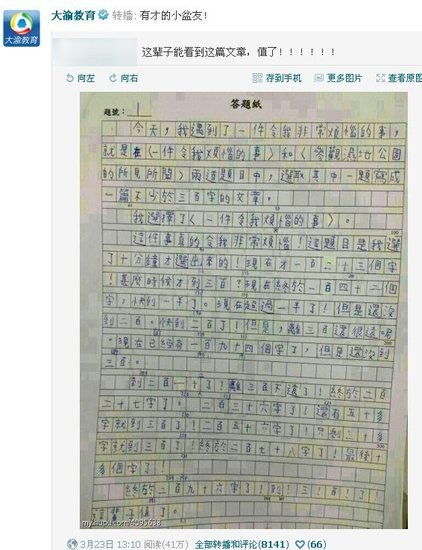 大渝教育 转播: 有才的小盆友!
大渝教育
这辈子能看到这篇文章，值了！！！！！！
向左 向右 存到手机 更多图片 查看原图
答題紙
題號：1
今天，我遇到了一件令我非常煩惱的事，
就是在〈一件令我煩惱的事〉和〈參觀濕地公園
的所見所聞〉兩道題目中，選取其中一題寫成
一篇不少於三百字的文章。
我選擇了〈一件令我煩惱的事〉。
這件事真的令我非常煩惱！這題目是我選
了十分鐘才選出來的！現在才一百二十三個字
！甚麼時候才到三百？現在終於一百四十二個
字，快到一半了。現在超過一半了！但是還沒
到二百。快到二百了！但是，離三百還很遠呢
。現在已經有一百九十四個字了，但是還沒到
三百。
到二百一十了！離三百不遠了！終於二百
二十七字了。二百三十六字了！還有五十多
字就到三百了！二百五十六字了！只剩三十多
字就到三百了！終於二百七十八字了！最後十
多個字了！
終於二百九十六字了！到！三百了！
這輩子值了。
3月23日 13:10 阅读(41万) 全部转播和评论(8141) (66)